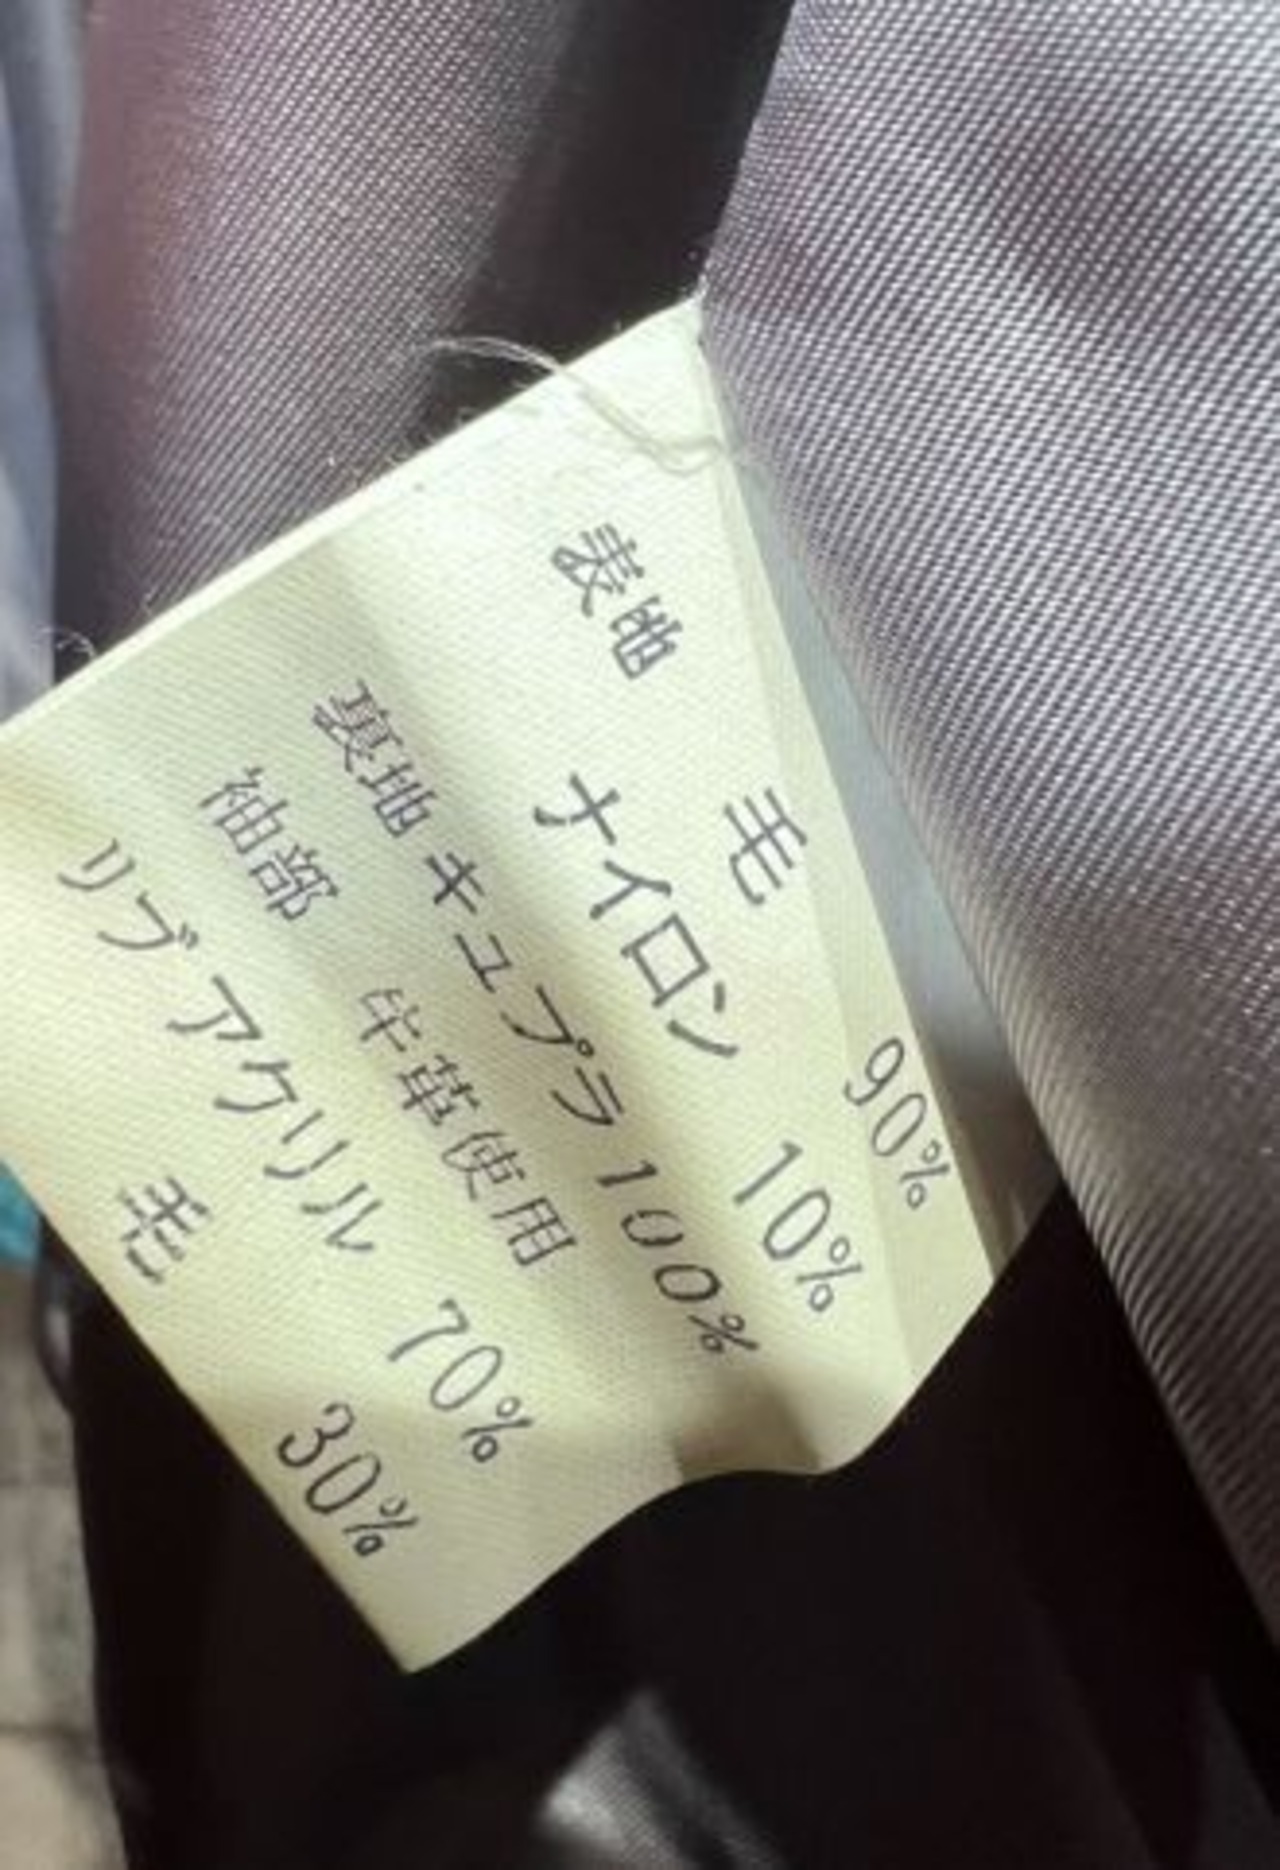 表地 毛 90%
ナイロン 10%
裏地 キュプラ 100%
袖部 牛革使用
リブ アクリル 70%
毛 30%